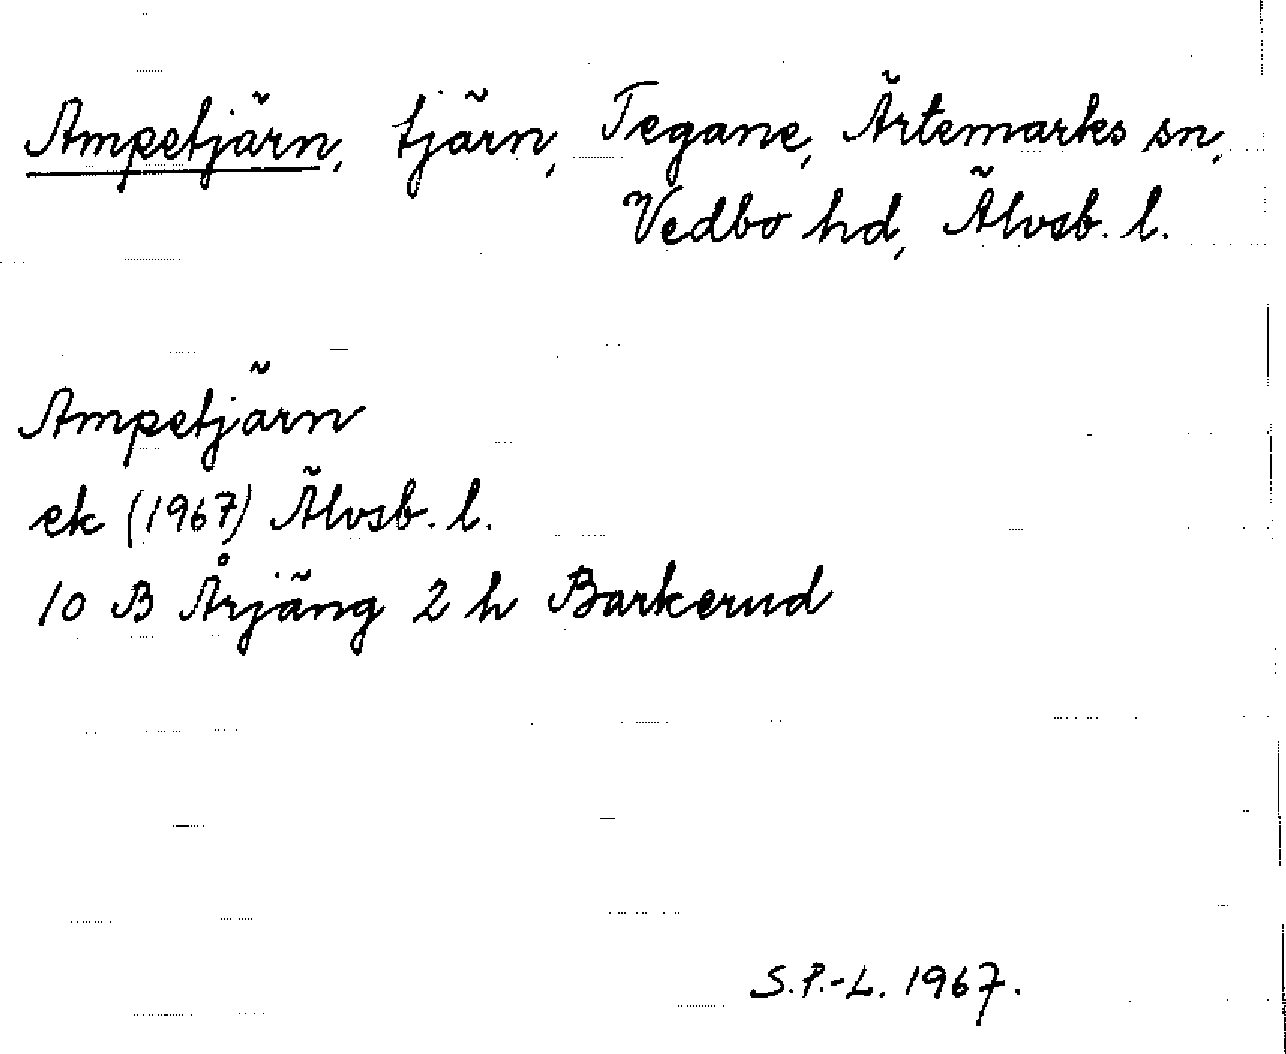 Ampetjärn, tjärn, Tegane, Ärtemarks sn,
Vedbo hd, Älvsb. l.
Ampetjärn
ek (1967) Älvsb. l.
10 B Årjäng 2 h Barkerud
S.P.-L. 1967.